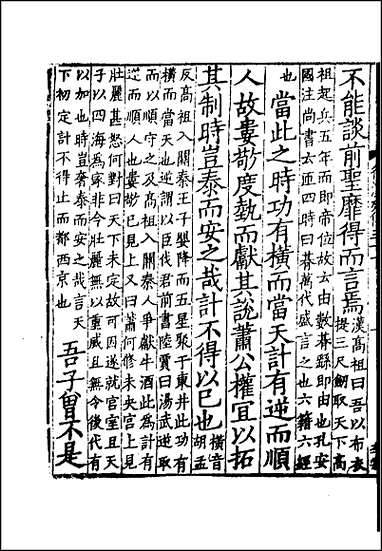 不能談前聖靡得而言焉漢高祖曰吾以布衣
提三尺劒取天下高
祖起兵五年而即帝位故云由數朞繇即由也孔安
國注尚書云匝四時曰朞萬代盛言之也六籍六經
也當此之時功有橫而當天計有逆而順
人故婁敬度埶而獻其說蕭公權宜以拓
其制時豈泰而安之哉計不得以已也橫音
胡孟
反高祖入關秦王子嬰降而五星聚于東井此功有
橫而當天也逆謂以臣伐君前書陸賈曰湯武逆取
而以順守之及高祖入關秦人爭獻牛酒此爲計有
逆而順人也婁敬已見上又曰蕭何修未央宮上見
壯麗甚怒何對曰天下未定故可因遂就宮室且天
子以四海爲家非令壯麗無以重威且無令後代有
以加也時豈奢泰而安之哉言天
下初定計不得止而都西京也
吾子曾不是